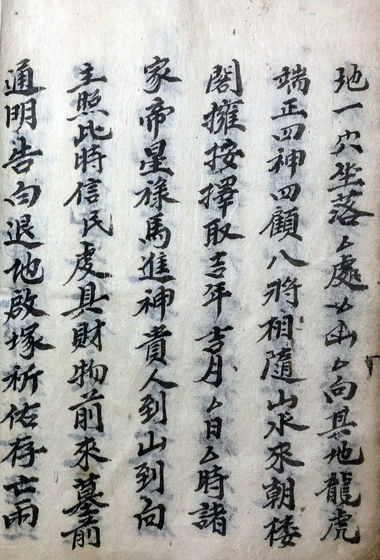 地一穴坐落厶處厶山厶向其地龍虎
端正四神四顧八將相隨山水來朝楼
閣擁按擇取吉年吉月厶日厶時諸
家帝星祿馬進神貴人到山到向
主照此將信氏虔具財物前來墓前
通明告白退地啟塚祈佑存亡兩